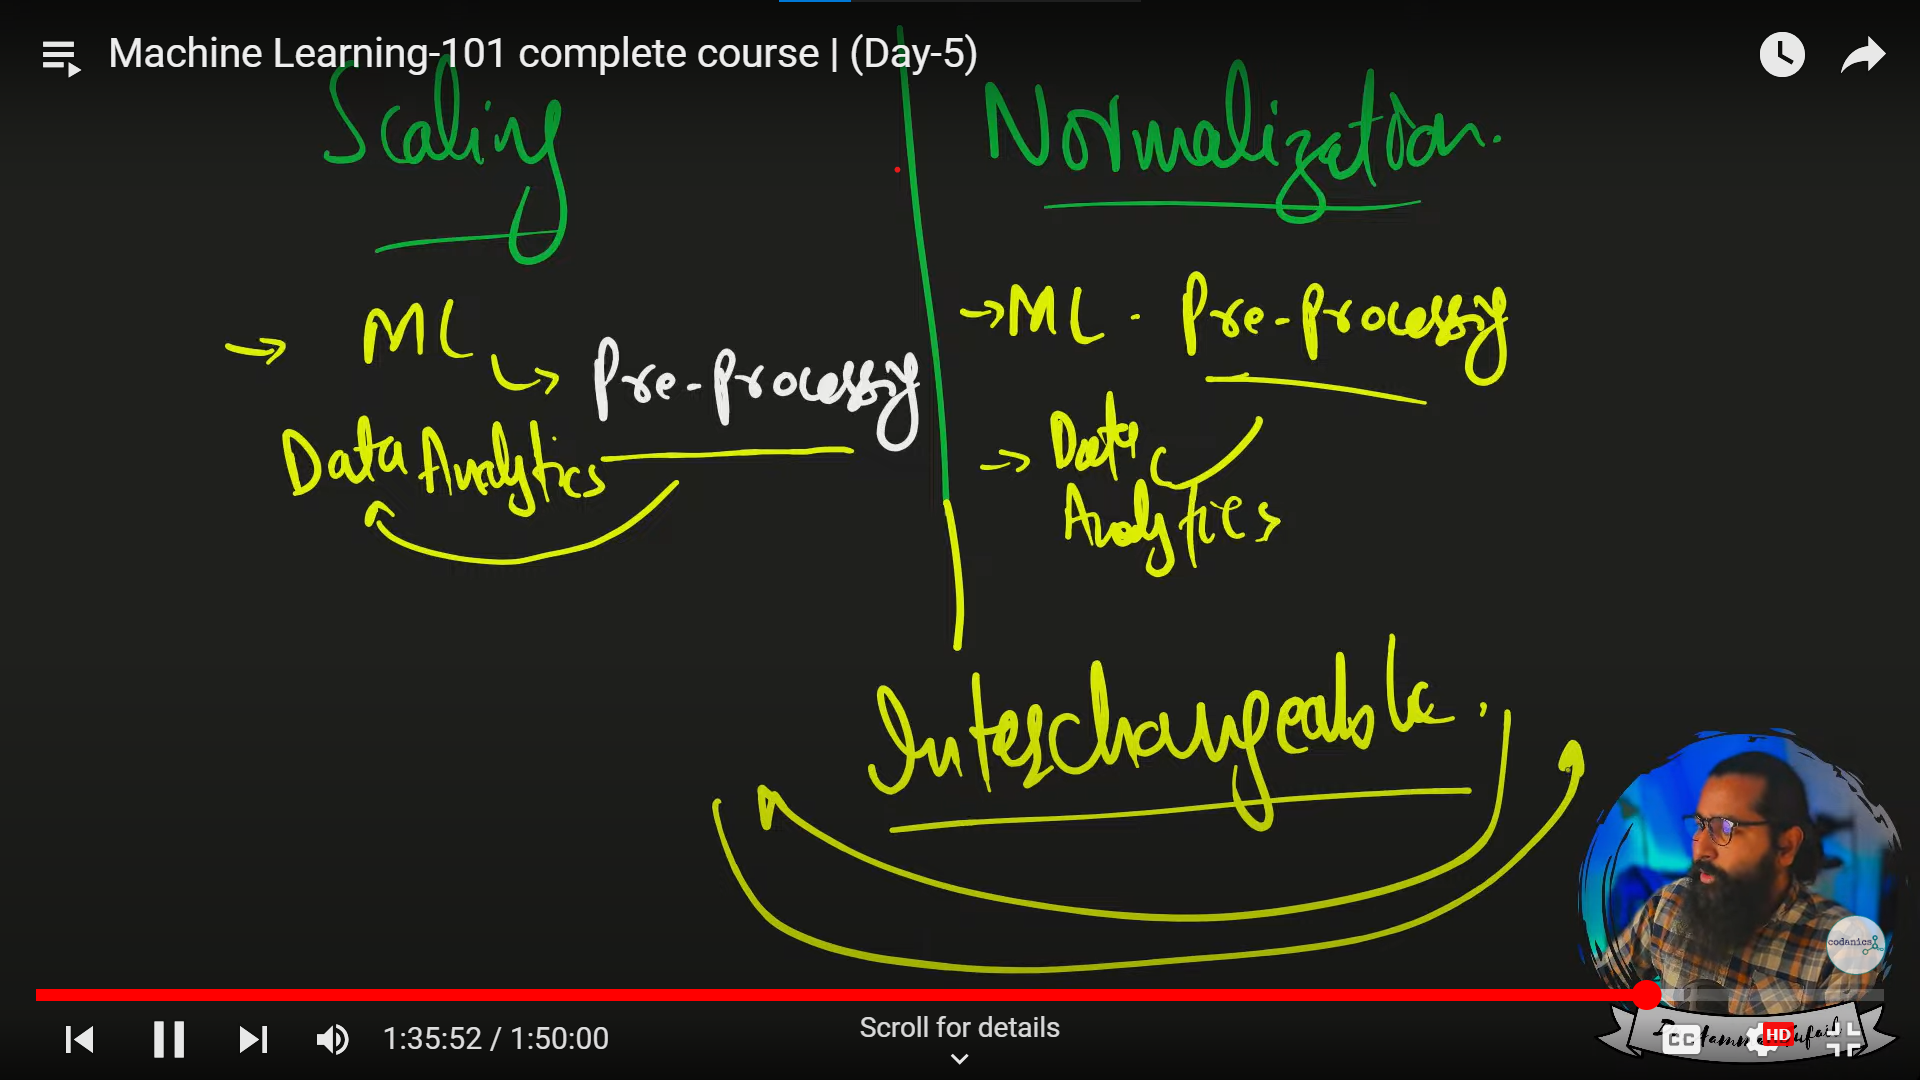 Machine Learning-101 complete course | (Day-5)
Scaling
Normalization.
→ ML
Pre-processing
Data Analytics
→ ML - Pre-processing
→ Data
Analytics
Interchangeable.
codanics
1:35:52 / 1:50:00
Scroll for details
CC
HD